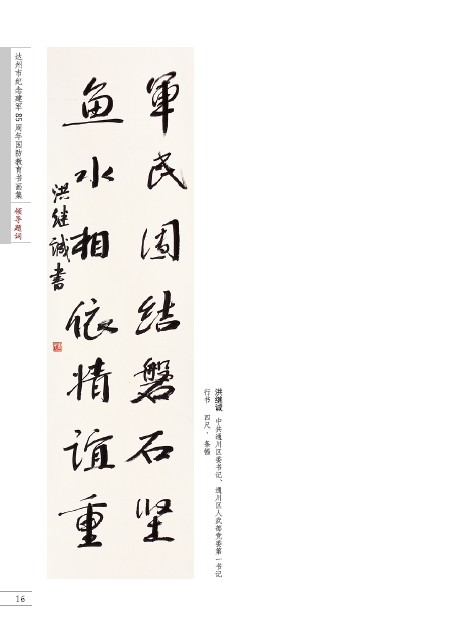 达州市纪念建军85周年国防教育书画集
领导题词
軍民固结磐石坚
鱼水相依情谊重
洪继诚书
洪继诚 中共通川区委书记、通川区人武部党委第一书记
行书 四尺·条幅
16